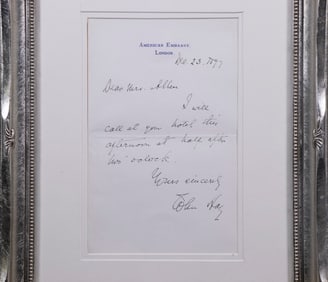 AMERICAN EMBASSY
LONDON
Dec. 23. 1897
Dear Mrs. Allen
I will
call at your hotel this
afternoon at half after
two o'clock.
Yours sincerely
John Hay